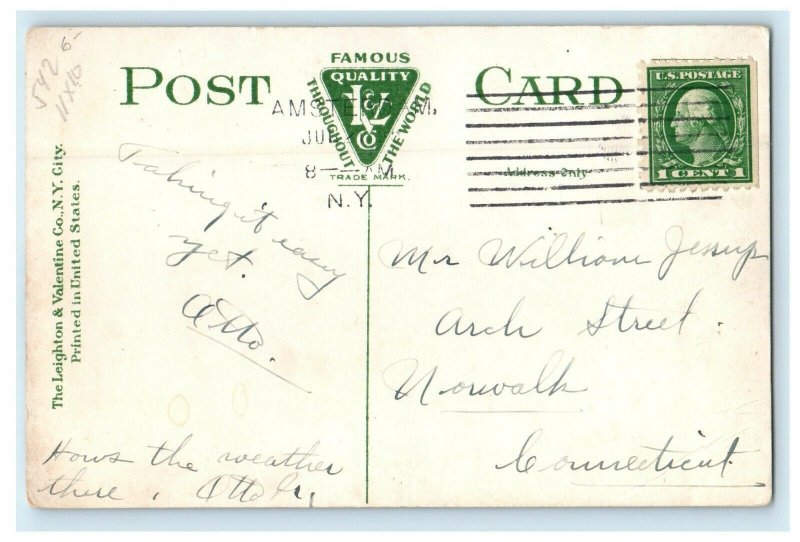 542 6-
11x10
POST CARD
FAMOUS
QUALITY
THROUGHOUT THE WORLD
L&V
Co
TRADE MARK.
AMSTERD M,
JUL
8——AM
N.Y.
Address Only
U.S. POSTAGE
1 CENT 1
The Leighton & Valentine Co., N.Y. City.
Printed in United States.
Taking it easy
yet.
Otto.
Hows the weather
there. Otto Jr,
Mr William Jessup
Arch Street.
Norwalk
Connecticut.